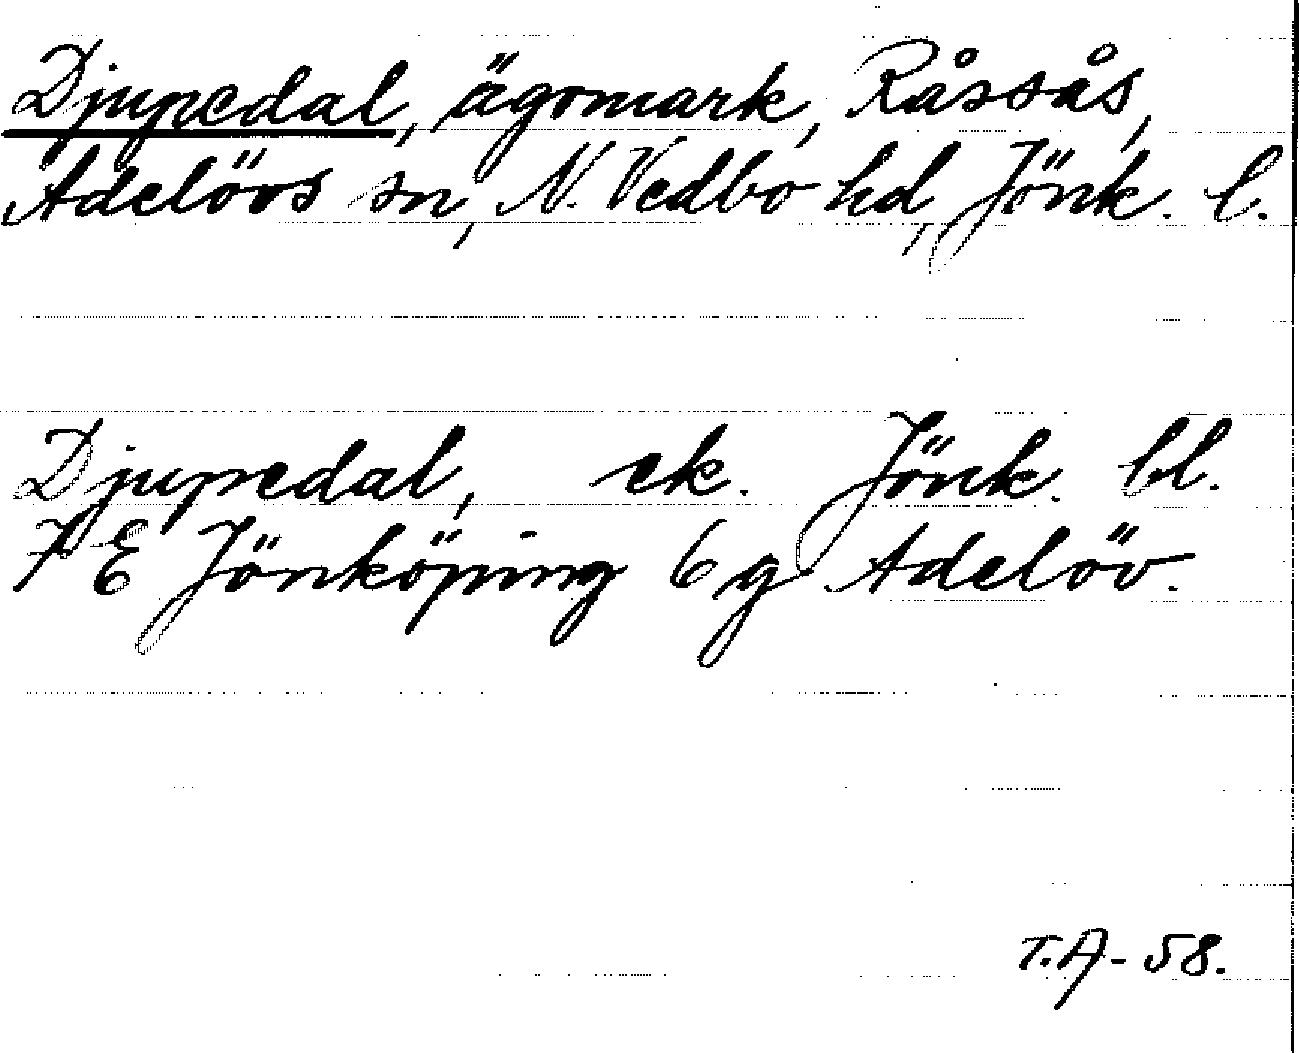 Djupedal, ägomark, Råssås,
Adelövs sn, N. Vedbo hd, Jönk. l.
Djupedal, ek. Jönk. bl.
7 E Jönköping 6 g Adelöv.
T.A-58.